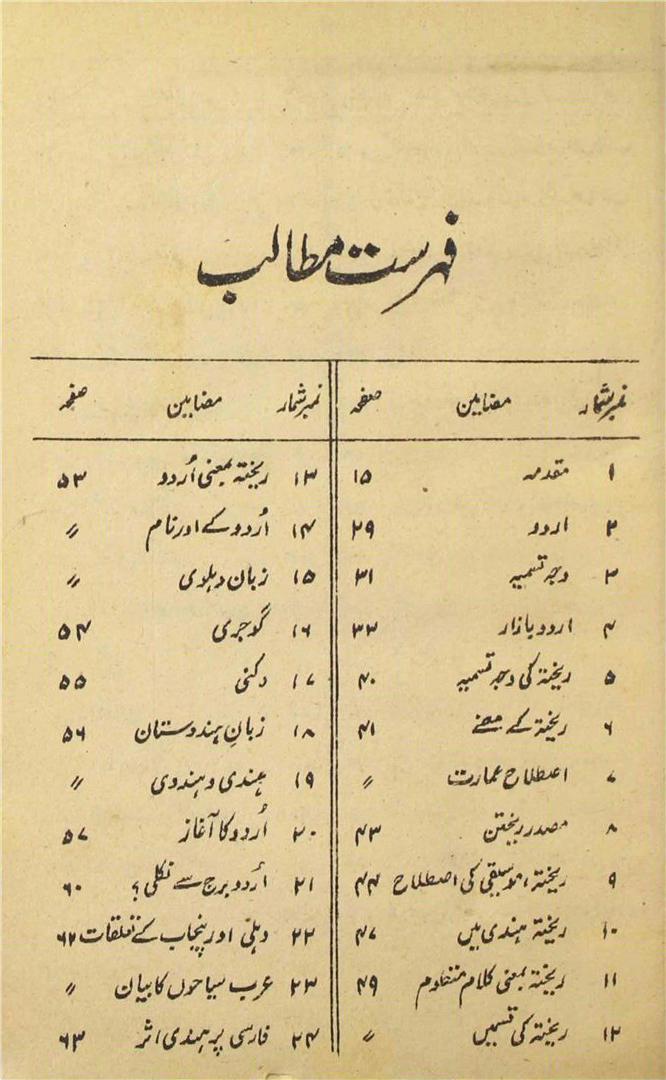 فہرست مطالب
نمبر شمار مضامین صفحہ
۱ مقدمہ ۱۵
۲ اردو ۲۹
۳ وجہ تسمیہ ۳۱
۴ اردو بازار ۳۳
۵ ریختہ کی وجہ تسمیہ ۴۰
۶ ریختہ کے معنے ۴۱
۷ اصطلاح عمارت 〃
۸ مصدر ریختن ۴۳
۹ ریختہ، موسیقی کی اصطلاح ۴۴
۱۰ ریختہ ہندی میں ۴۷
۱۱ ریختہ بمعنی کلام منظوم ۴۹
۱۲ ریختہ کی قسمیں 〃
نمبر شمار مضامین صفحہ
۱۳ ریختہ بمعنی اُردو ۵۳
۱۴ اُردو کے اور نام 〃
۱۵ زبان دہلوی 〃
۱۶ گوجری ۵۴
۱۷ دکنی ۵۵
۱۸ زبانِ ہندوستان ۵۶
۱۹ ہندی و ہندوی 〃
۲۰ اُردو کا آغاز ۵۷
۲۱ اُردو برج سے نکلی؟ ۶۰
۲۲ دہلی اور پنجاب کے تعلقات ۶۲
۲۳ عرب سیاحوں کا بیان 〃
۲۴ فارسی پر ہندی اثر ۶۳